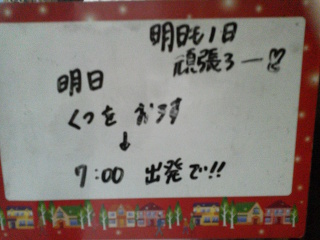 明日も1日
頑張ろー♡
明日
くつを おろす
↓
7:00 出発で!!